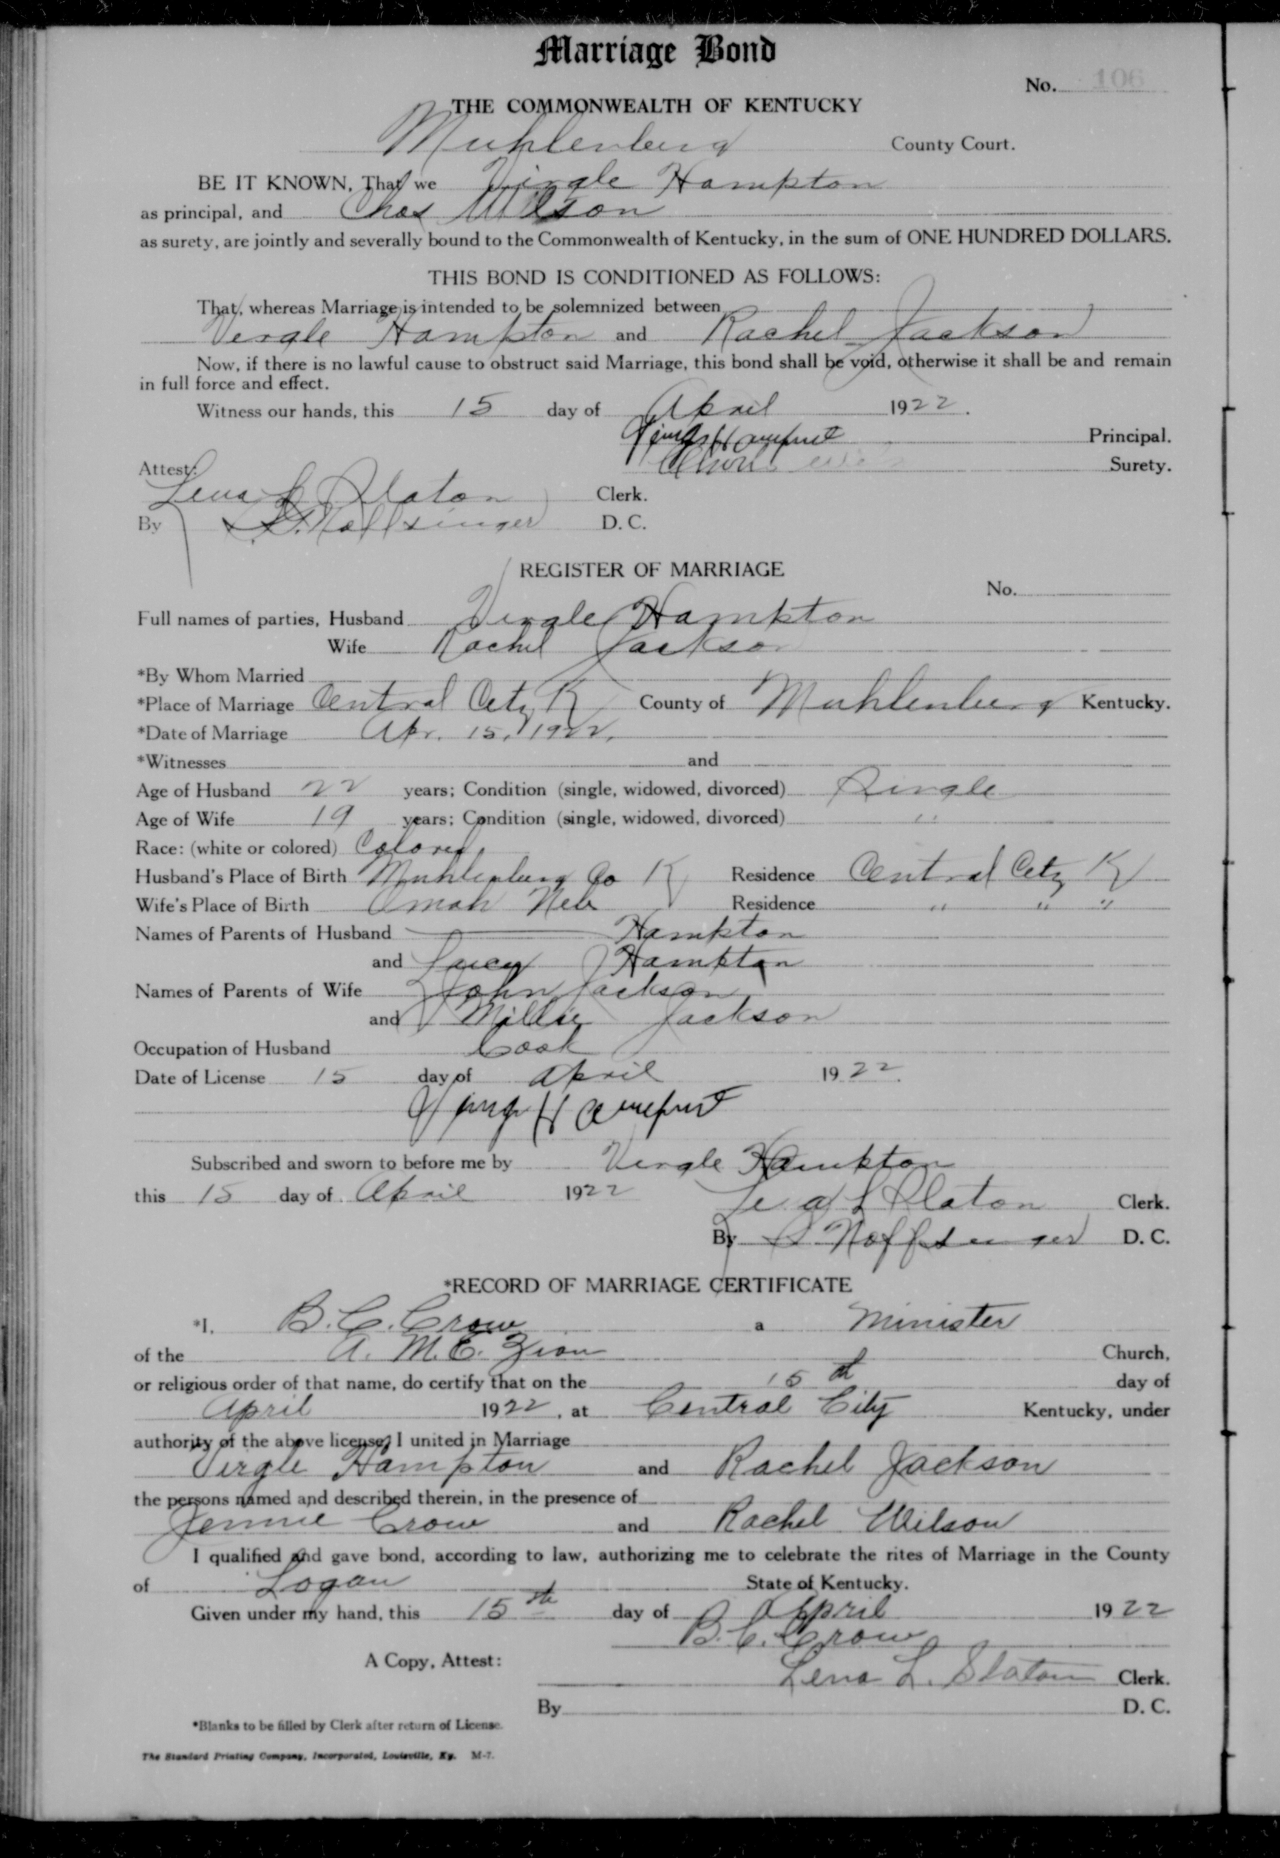 Marriage Bond
No. 106
THE COMMONWEALTH OF KENTUCKY
Muhlenberg County Court.
BE IT KNOWN, That we Virgle Hampton
as principal, and Chas Wilson
as surety, are jointly and severally bound to the Commonwealth of Kentucky, in the sum of ONE HUNDRED DOLLARS.
THIS BOND IS CONDITIONED AS FOLLOWS:
That, whereas Marriage is intended to be solemnized between
Virgle Hampton and Rachel Jackson
Now, if there is no lawful cause to obstruct said Marriage, this bond shall be void, otherwise it shall be and remain
in full force and effect.
Witness our hands, this 15 day of April 1922.
Principal.
Surety.
Attest:
Lena L Slaton Clerk.
By Noffsinger D. C.
REGISTER OF MARRIAGE
No.
Full names of parties, Husband Virgle Hampton
Wife Rachel Jackson
*By Whom Married
*Place of Marriage Central City K County of Muhlenberg Kentucky.
*Date of Marriage Apr. 15, 1922.
*Witnesses and
Age of Husband 22 years; Condition (single, widowed, divorced) Single
Age of Wife 19 years; Condition (single, widowed, divorced) "
Race: (white or colored) Colored.
Husband's Place of Birth Muhlenberg Co Ky Residence Central City Ky
Wife's Place of Birth Omah Neb Residence " " "
Names of Parents of Husband Hampton
and Lucy Hampton
Names of Parents of Wife John Jackson
and Millie Jackson
Occupation of Husband Cook
Date of License 15 day of April 1922.
Subscribed and sworn to before me by Virgle Hampton
this 15 day of April 1922
Lena L Slaton Clerk.
By S Noffsinger D. C.
*RECORD OF MARRIAGE CERTIFICATE
*I, B. C. Crow a Minister
of the A. M. E. Zion Church,
or religious order of that name, do certify that on the 15th day of
April 1922, at Central City Kentucky, under
authority of the above license, I united in Marriage
Virgle Hampton and Rachel Jackson
the persons named and described therein, in the presence of
Jennie Crow and Rachel Wilson
I qualified and gave bond, according to law, authorizing me to celebrate the rites of Marriage in the County
of Logan State of Kentucky.
Given under my hand, this 15th day of April 1922
B. C. Crow
A Copy, Attest:
Lena L. Slaton Clerk.
By D. C.
*Blanks to be filled by Clerk after return of License.
The Standard Printing Company, Incorporated, Louisville, Ky. M-7.